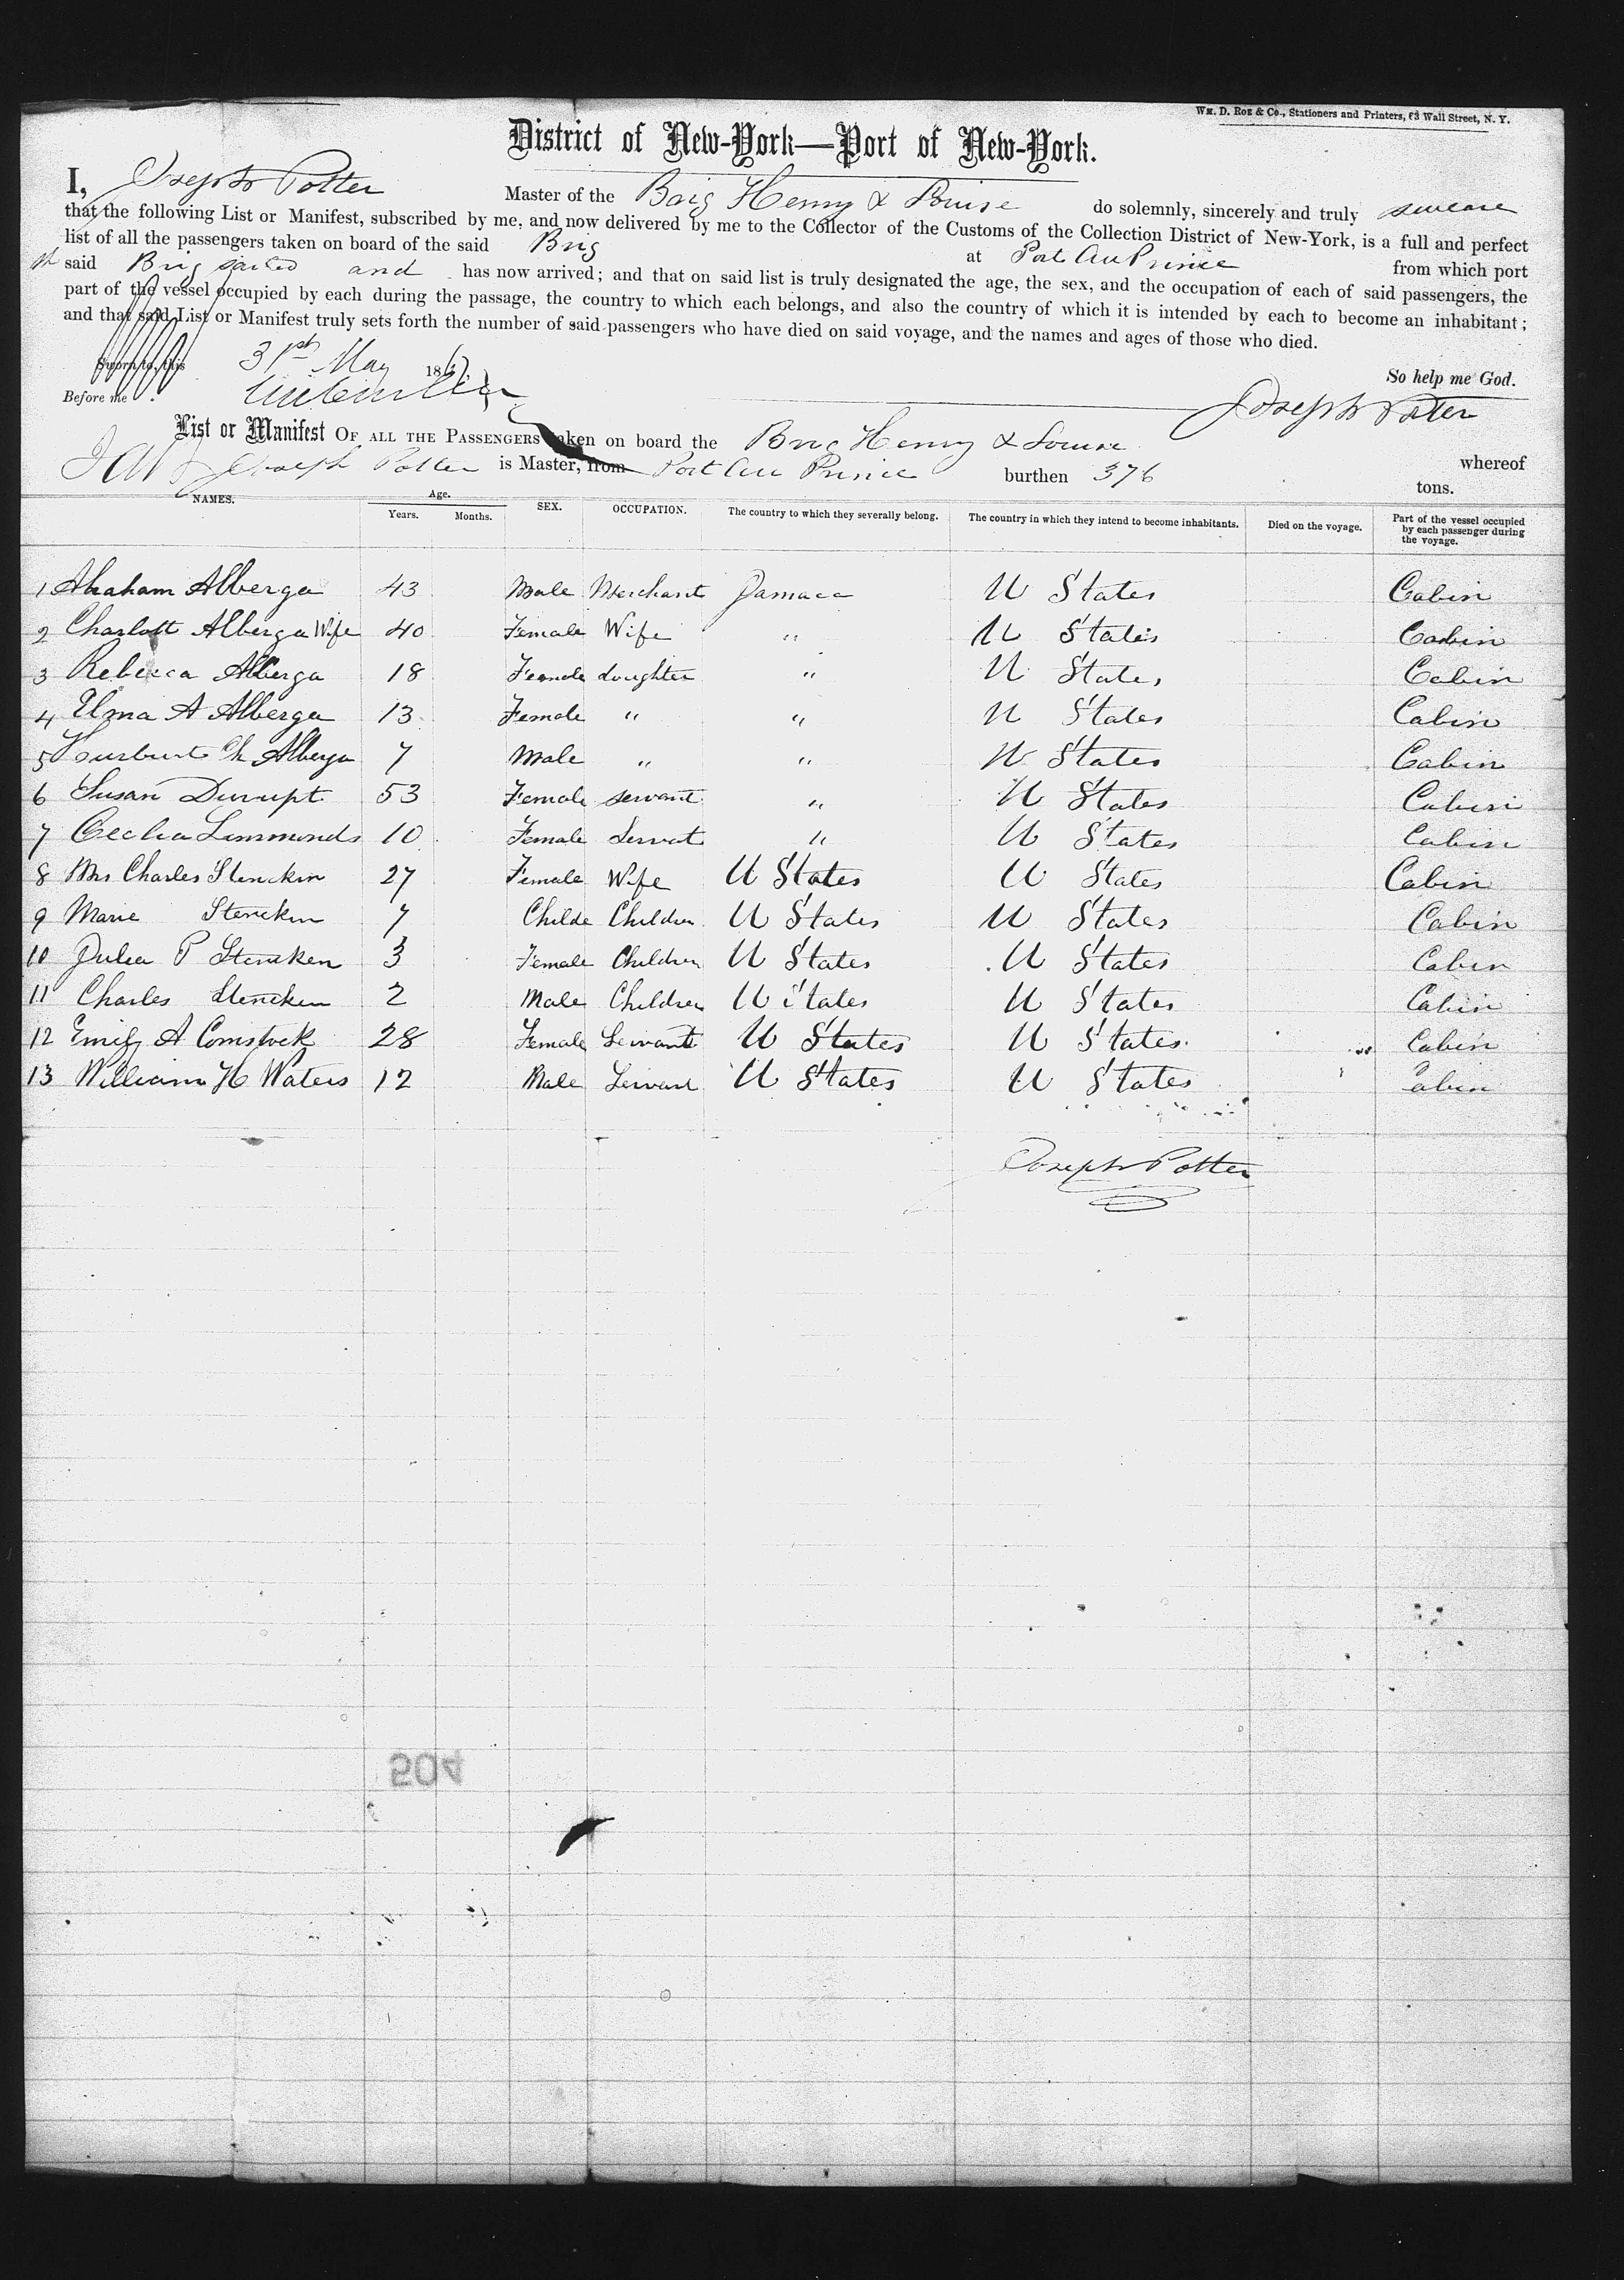 Wm. D. Roe & Co., Stationers and Printers, 63 Wall Street, N. Y.
District of New-York—Port of New-York.
I, Joseph Potter Master of the Brig Henry & Louise do solemnly, sincerely and truly sweare
that the following List or Manifest, subscribed by me, and now delivered by me to the Collector of the Customs of the Collection District of New-York, is a full and perfect
list of all the passengers taken on board of the said Brig at Port Au Prince from which port
said Brig sailed and has now arrived; and that on said list is truly designated the age, the sex, and the occupation of each of said passengers, the
part of the vessel occupied by each during the passage, the country to which each belongs, and also the country of which it is intended by each to become an inhabitant;
and that said List or Manifest truly sets forth the number of said passengers who have died on said voyage, and the names and ages of those who died.
Sworn to, this 31st May 186 So help me God.
Before me Joseph Potter
List or Manifest OF ALL THE PASSENGERS taken on board the Brig Henry & Louise whereof
Joseph Potter is Master, from Port Au Prince burthen 376 tons.
NAMES. Age. Years. Months. SEX. OCCUPATION. The country to which they severally belong. The country in which they intend to become inhabitants. Died on the voyage. Part of the vessel occupied by each passenger during the voyage.
1 Abraham Alberga 43 Male Merchant Jamaca U States Cabin
2 Charlott Alberga Wife 40 Female Wife " U States Cabin
3 Rebecca Alberga 18 Female doughter " U States Cabin
4 Elma A Alberga 13 Female " " U States Cabin
5 Alberga 7 Male " " U States Cabin
6 Susan Durupt 53 Female servant " U States Cabin
7 Cecelia Limmonds 10 Female Servat " U States Cabin
8 Mrs Charles Stencken 27 Female Wife U States U States Cabin
9 Marie Stencken 7 Childe Children U States U States Cabin
10 Julia P Stencken 3 Female Children U States U States Cabin
11 Charles Stencken 2 Male Children U States U States Cabin
12 Emily A Comstock 28 Female Servant U States U States Cabin
13 William H Waters 12 Male Servant U States U States Cabin
Joseph Potter
504